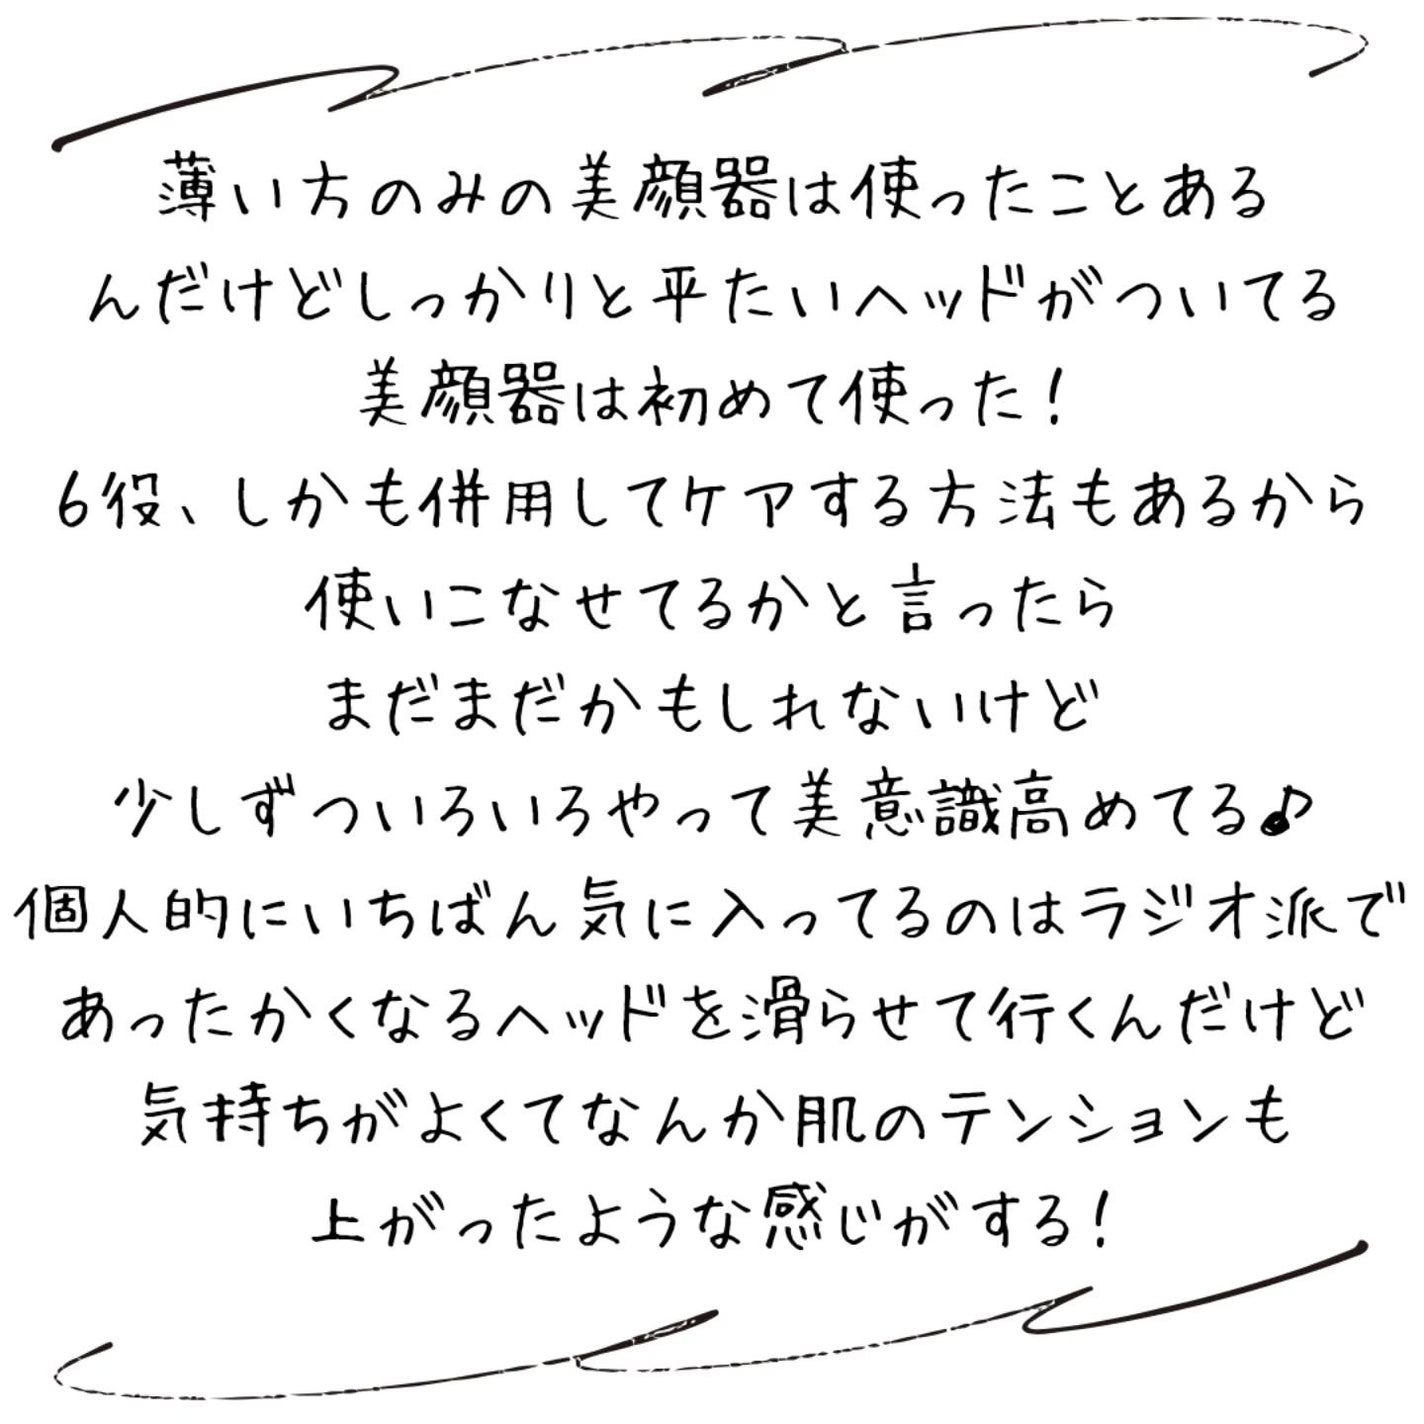 薄い方のみの美顔器は使ったことある
んだけどしっかりと平たいヘッドがついてる
美顔器は初めて使った！
6役、しかも併用してケアする方法もあるから
使いこなせてるかと言ったら
まだまだかもしれないけど
少しずついろいろやって美意識高めてる♪
個人的にいちばん気に入ってるのはラジオ派で
あったかくなるヘッドを滑らせて行くんだけど
気持ちがよくてなんか肌のテンションも
上がったような感じがする！